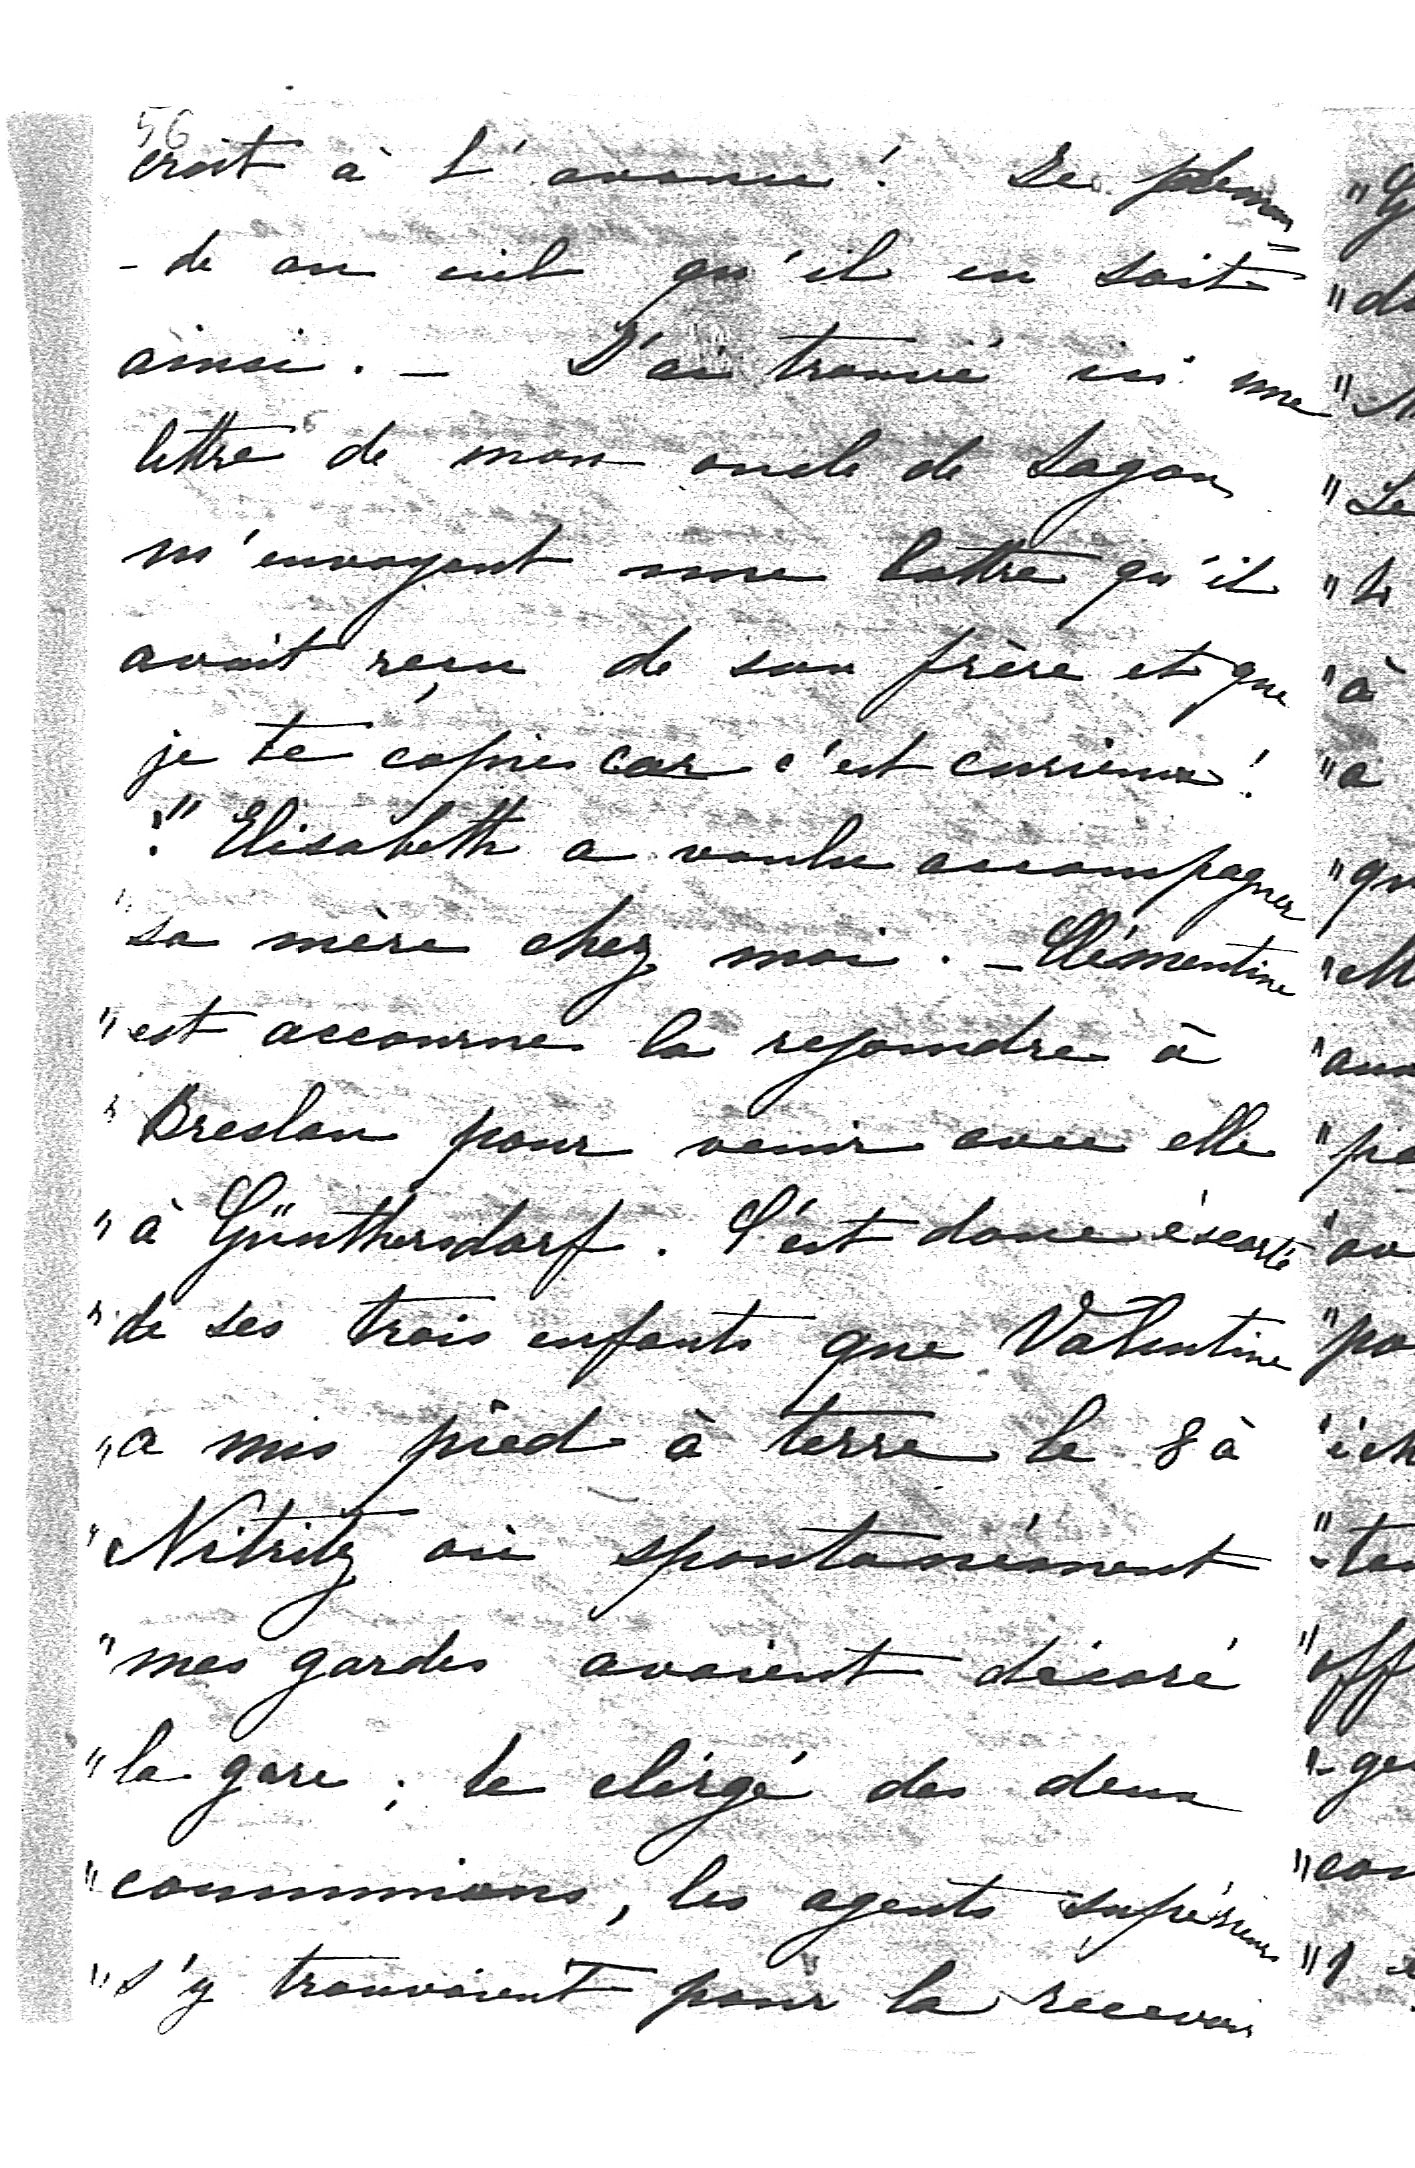 56
croit à l'avance! Je deman
-de au ciel qu'il en soit
ainsi. — J'ai trouvé ici une
lettre de mon oncle de Sagan
m'envoyant une lettre qu'il
avait reçu de son frère et que
je te copie car c'est curieux!
:" Elisabeth a voulu accompagner
"sa mère chez moi. — Clémentine
"est accourue la rejoindre à
"Breslau pour venir avec elle
"à Günthersdorf. C'est donc éscorté
"de ses trois enfants que Valentine
"a mis pied à terre le 8 à
"Nitritz où spontanément
"mes gardes avaient décoré
"la gare; le clérgé des deux
"communions, les agents supérieurs
"s'y trouvaient pour la recevoir